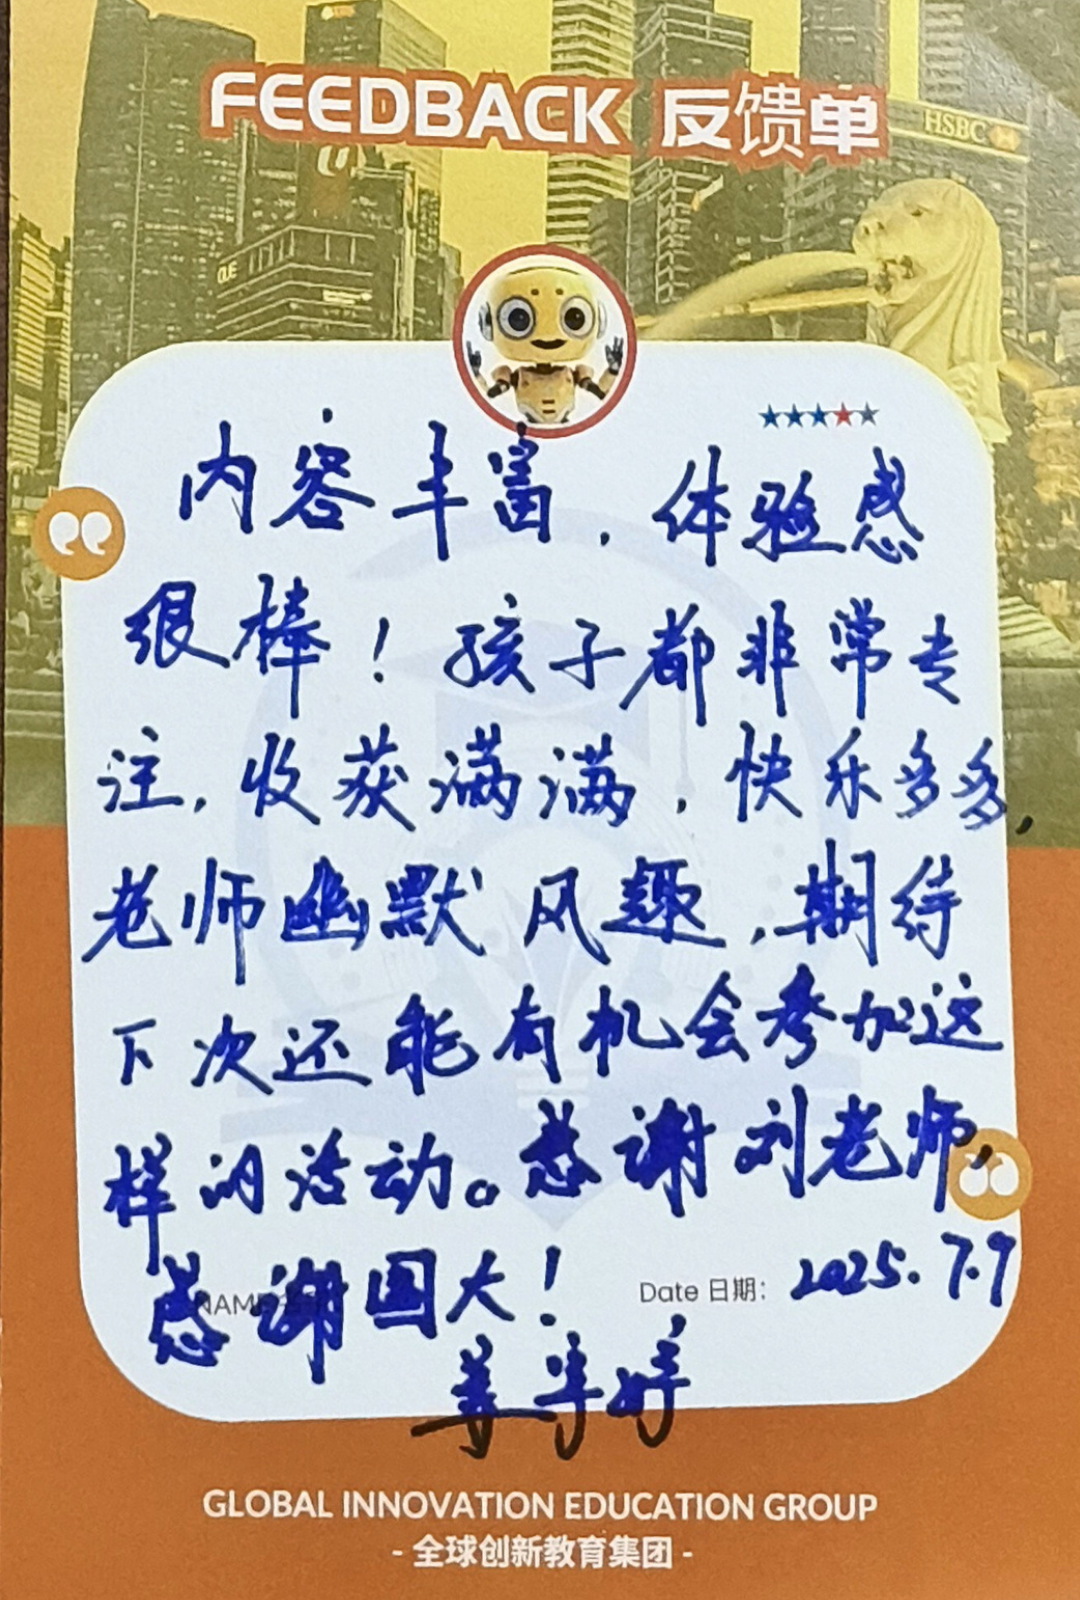 FEEDBACK 反馈单
HSBC
OUE
内容丰富,体验感
很棒!孩子都非常专
注,收获满满,快乐多多,
老师幽默风趣,期待
下次还能有机会参加这
样的活动。感谢刘老师,
感谢国大!
NAME
Date 日期: 2025.7.9
姜
婷
GLOBAL INNOVATION EDUCATION GROUP
- 全球创新教育集团 -